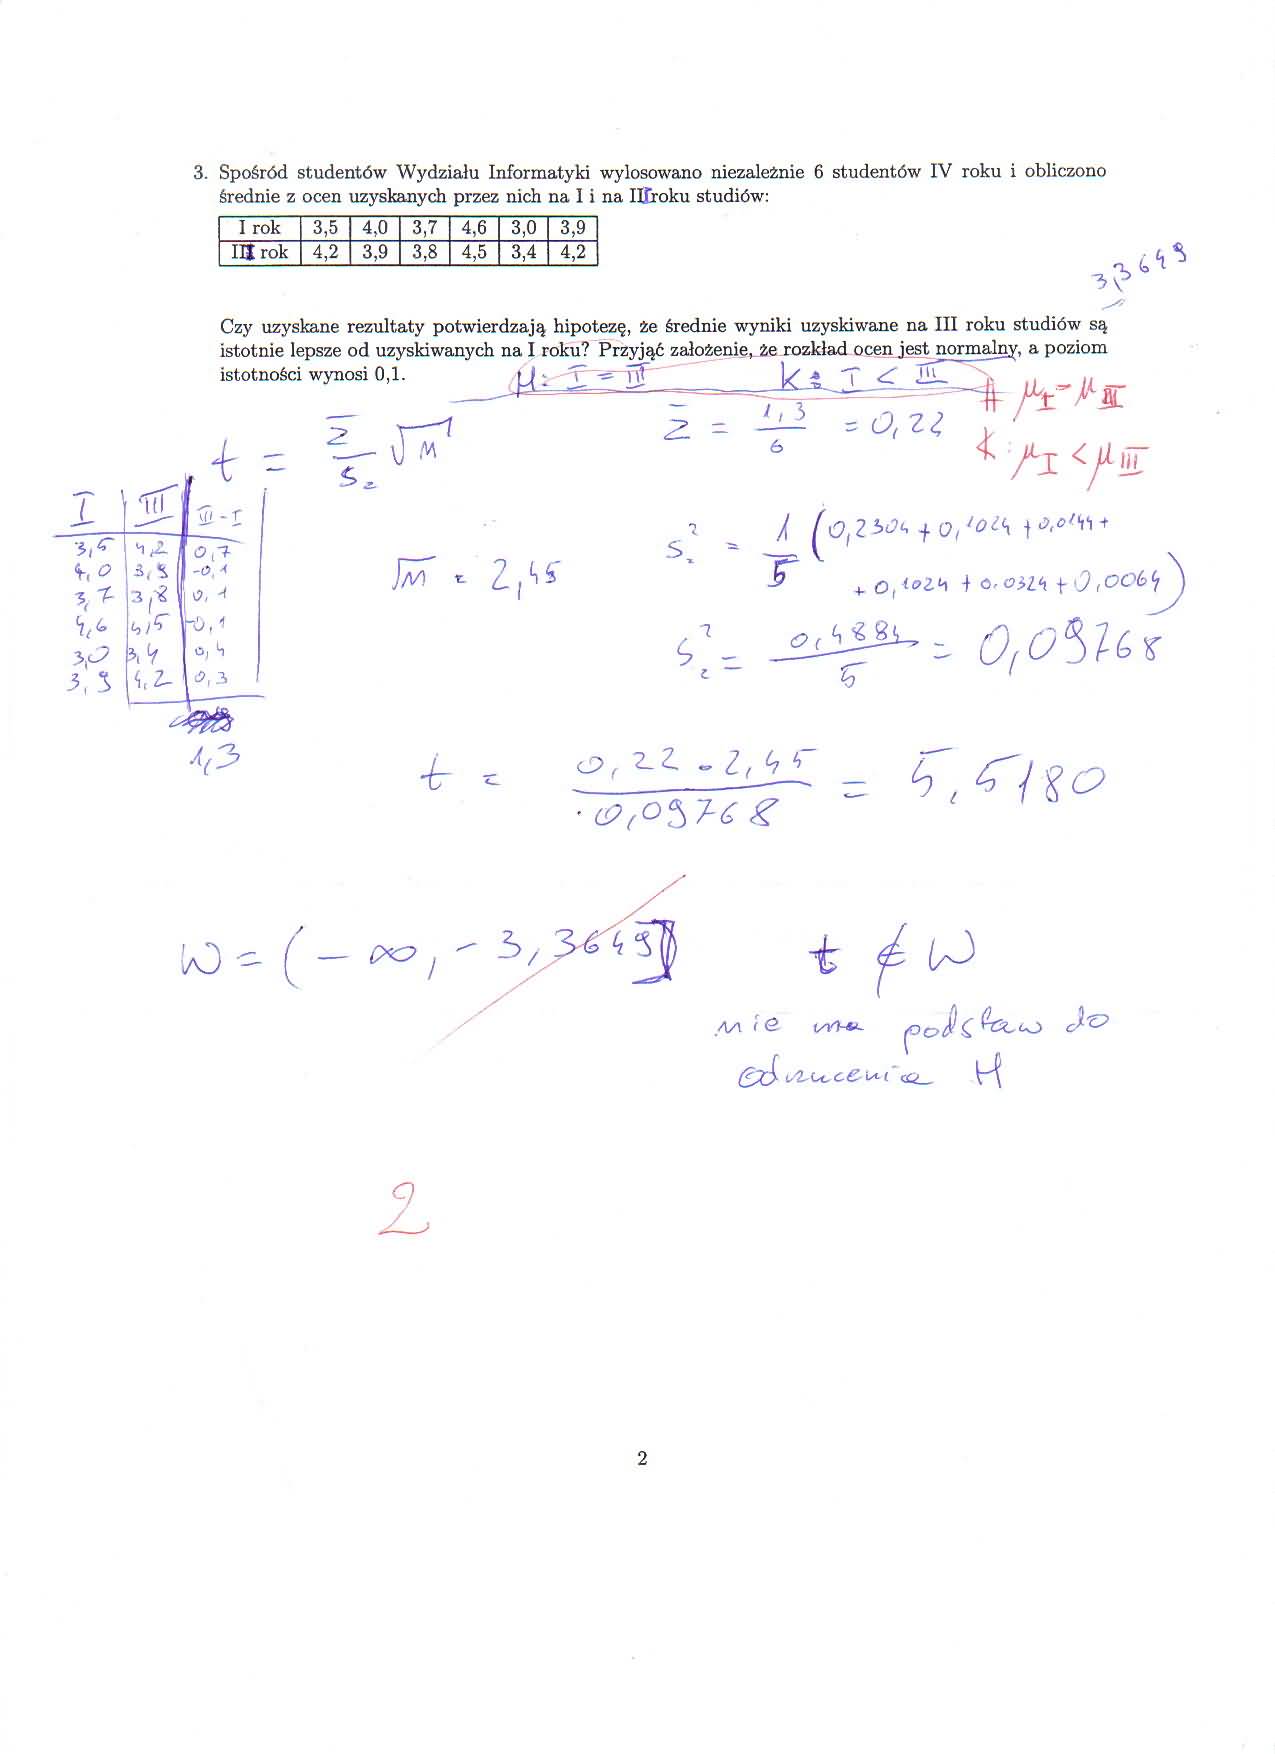 3. Spośród studentów Wydziału Informatyki wylosowano niezależnie 6 studentów IV roku i obliczono
średnie z ocen uzyskanych przez nich na I i na III roku studiów:
I rok 3,5 4,0 3,7 4,6 3,0 3,9
III rok 4,2 3,9 3,8 4,5 3,4 4,2
3,3649
Czy uzyskane rezultaty potwierdzają hipotezę, że średnie wyniki uzyskiwane na III roku studiów są
istotnie lepsze od uzyskiwanych na I roku? Przyjąć założenie, że rozkład ocen jest normalny, a poziom
istotności wynosi 0,1.
H: I = III K: I < III
H μI = μIII
K: μI < μIII
t = z̄/s_z √n
z̄ = 1,3/6 = 0,22
I III III-I
3,5 4,2 0,7
4,0 3,9 -0,1
3,7 3,8 0,1
4,6 4,5 -0,1
3,0 3,4 0,4
3,9 4,2 0,3
1,3
√n = 2,45
s_z² = 1/5 (0,2304 + 0,1024 + 0,0144 +
+ 0,1024 + 0,0324 + 0,0064)
s_z² = 0,4884/5 = 0,09768
t = 0,22 · 2,45/0,09768 = 5,5180
W = (-∞, -3,3649)
t ∉ W
nie ma podstaw do
odrzucenia H
2
2